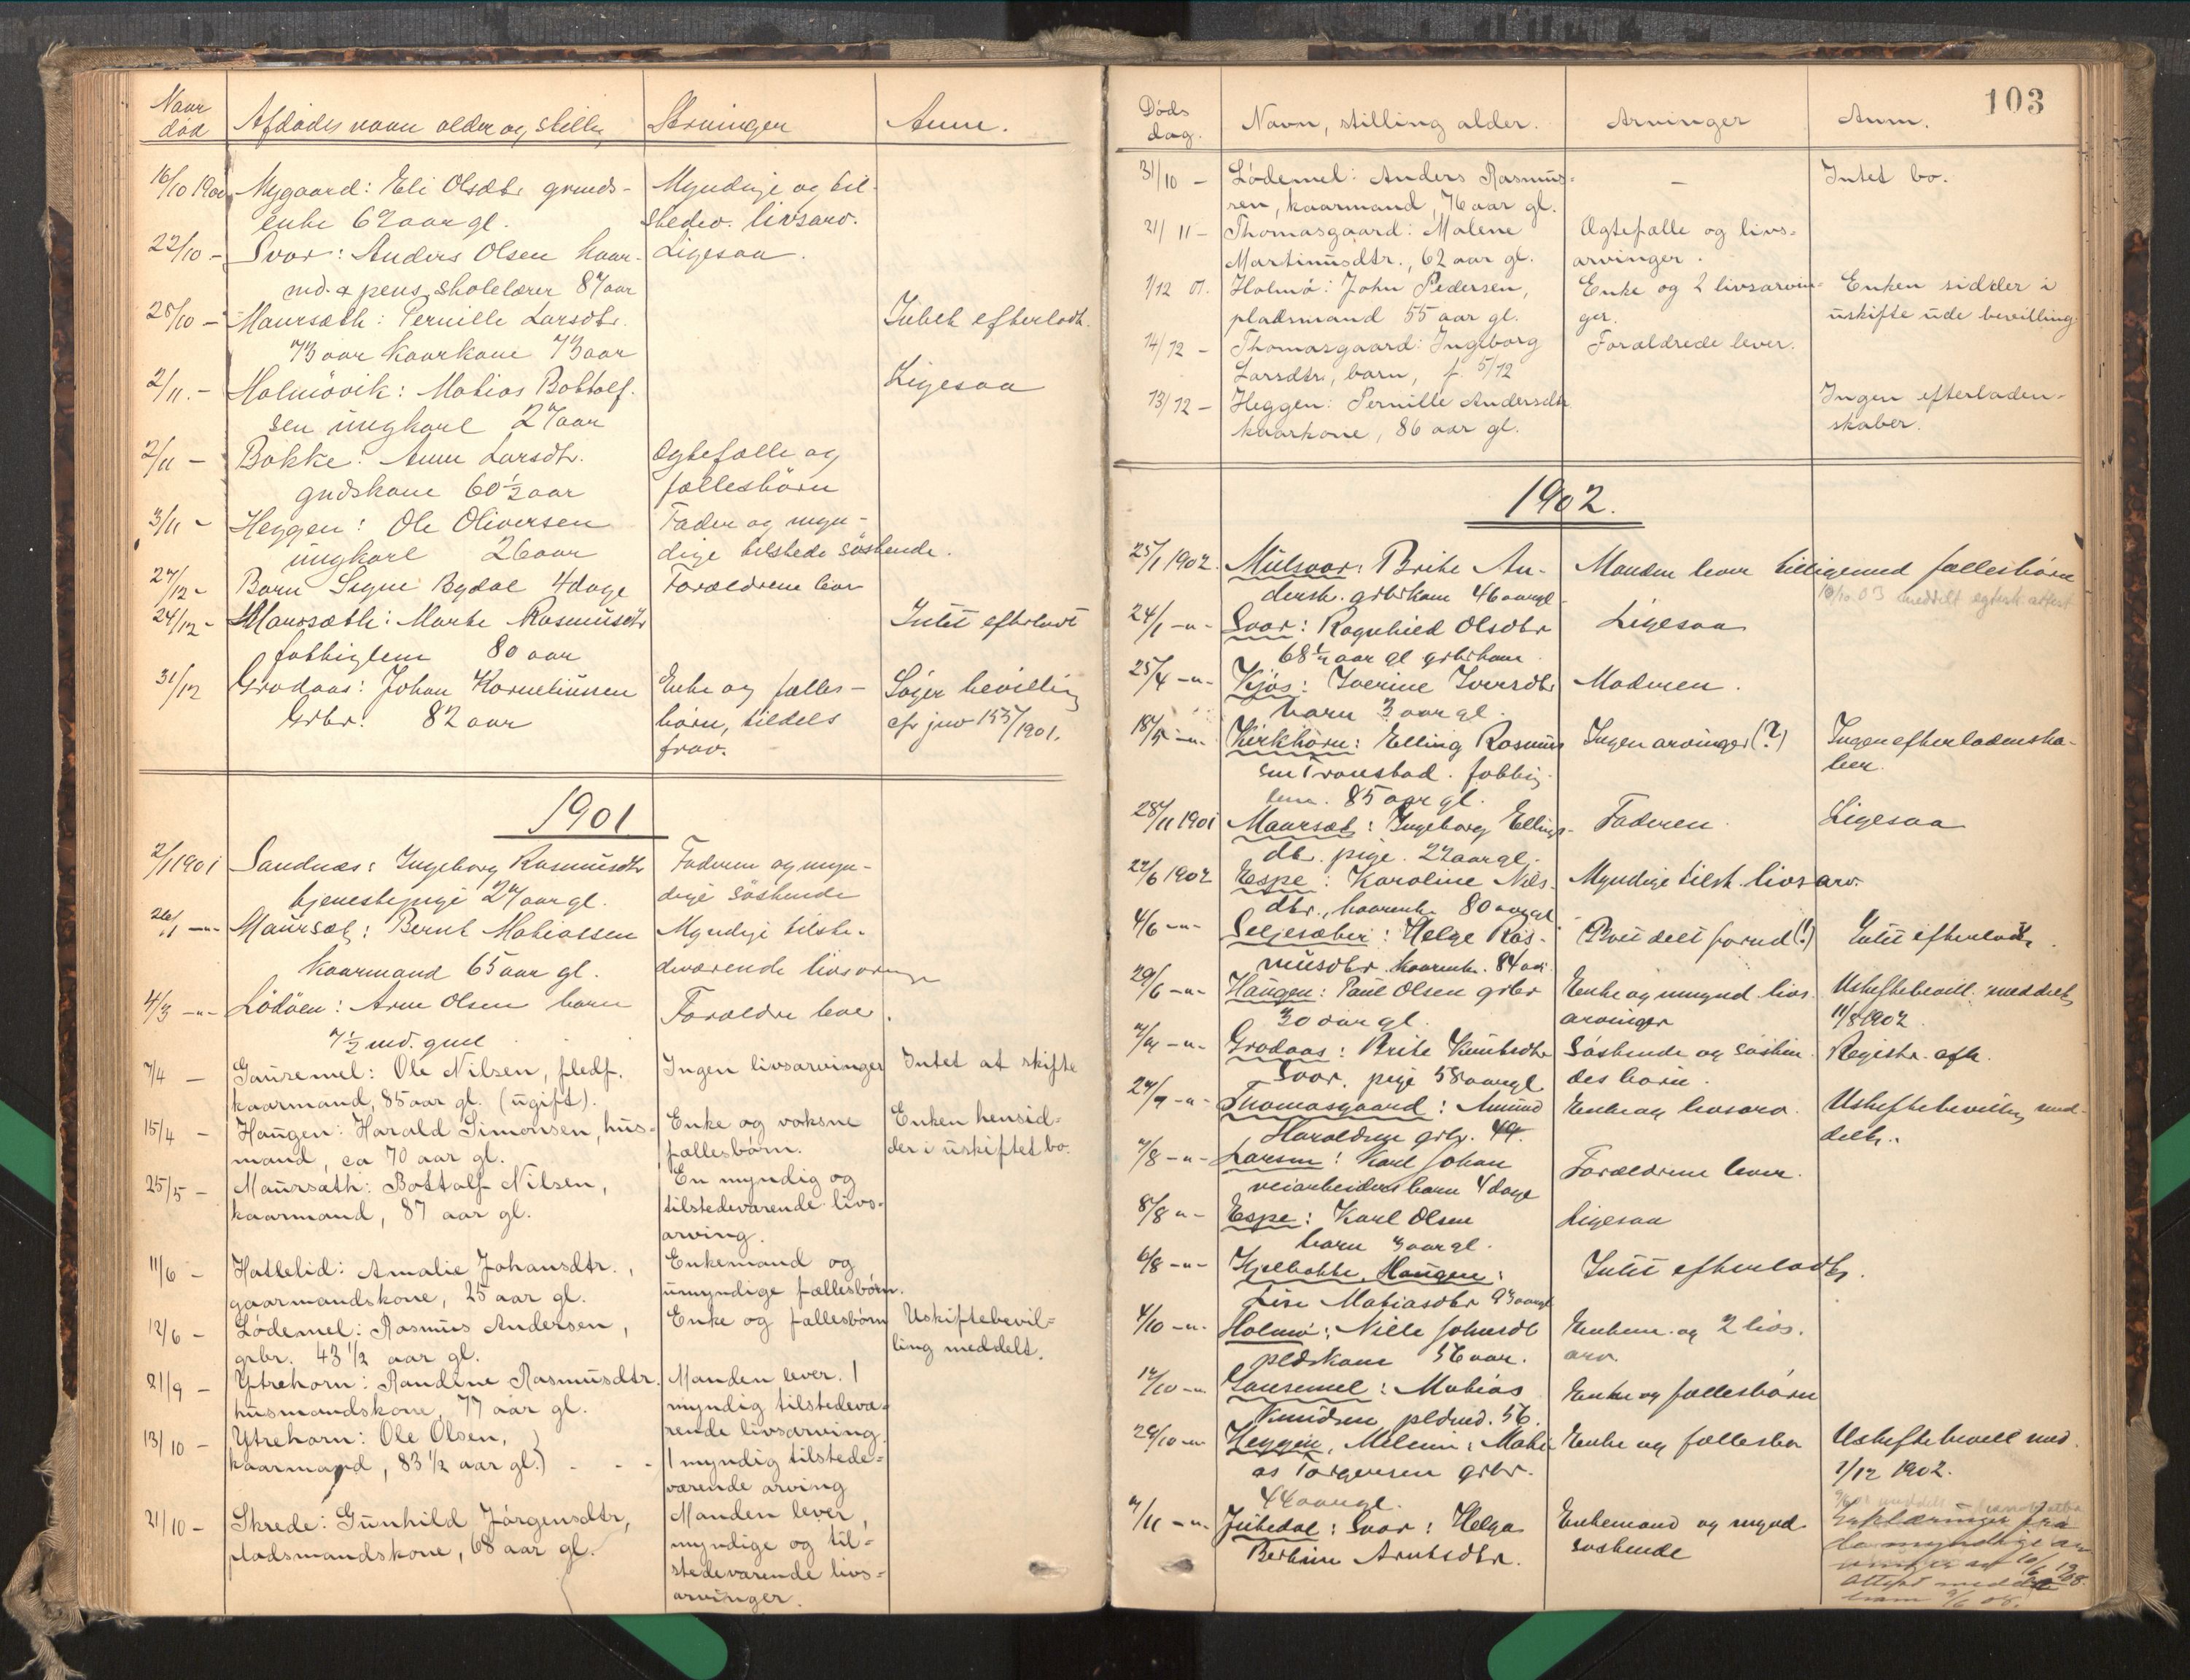 Naar død
Afdødes navn alder og stilling
Arvinger
Anm.
16/10 1900 Nygaard: Eli Olsdtr. gruds-
enke 62 aar gl.
Myndige og til-
stedev. livsarv.
22/10 – Svor: Anders Olsen kaar-
md. & pens. skolelærer 87 aar
Ligesaa.
28/10 – Maursæth: Pernille Larsdtr.
73 aar kaarkone 73 aar
Intet efterladt.
2/11. – Holmövik: Matias Bottolf-
sen ungkarl 27 aar
Ligesaa
2/11 – Bakke: Anne Larsdtr.
grdskone 60 1/2 aar
Ægtefælle og
fællesbörn
3/11 – Heggen: Ole Oliversen
ungkarl 26 aar
Fader og myn-
dige tilstede söskende.
27/12 – Barn Signe Rydal 4 dage
Forældrene lever
24/12 – Maursæth: Marte Rasmusdtr
fattiglem 80 aar
Intet efterladt
31/12 Grodaas: Johan Korneliussen
Grbr. 82 aar
Enke og fælles-
börn, tildels
frav.
Söger bevilling
cfr jnr 155/1901.
1901
2/1 1901 Sandnæs: Ingeborg Rasmusdtr
tjenestepige 27 aar gl.
Faderen og myn-
dige söskende
26/1 –"– Maursæt: Bernt Matiassen
kaarmand 65 aar gl.
Myndige tilste-
deværende livsarvinger
4/3 –"– Lödöen: Arne Olsen barn
7 1/2 md. gml
Forældre lever.
7/4 – Gausemel: Ole Nilsen, fledf.
kaarmand, 85 aar gl. (ugift).
Ingen livsarvinger
Intet at skifte
15/4 – Haugen: Harald Simonsen, hus-
mand, ca 70 aar gl.
Enke og voksne
fællesbørn.
Enken hensid-
der i uskiftet bo.
25/5 – Maursæth: Bottolf Nilsen,
kaarmand, 87 aar gl.
En myndig og
tilstedeværende livs-
arving.
11/6 – Hattelid: Amalie Johansdtr.,
gaarmandskone, 25 aar gl.
Enkemand og
umyndige fællesbørn.
12/6 – Lødemel: Rasmus Andersen,
grbr. 43 1/2 aar gl.
Enke og fællesbørn
Uskiftebevil-
ling meddelt.
21/9 – Ytrehorn: Randine Rasmusdtr.
husmandskone, 77 aar gl.
Manden lever. 1
myndig tilstedevæ-
rende livsarving.
13/10 – Ytrehorn: Ole Olsen,
kaarmand, 83 1/2 aar gl.)
1 myndig tilstede-
værende arving
21/10 – Skrede: Gunhild Jørgensdtr,
pladsmandskone, 68 aar gl.
Manden lever,
myndige og til-
stedeværende livs-
arvinger.
103
Døds dag.
Navn, stilling alder.
Arvinger
Anm.
31/10 – Lødemel: Anders Rasmus-
sen, kaarmand, 76 aar gl.
–
Intet bo.
21/11 – Thomasgaard: Malene
Martinusdtr., 62 aar gl.
Ægtefælle og livs-
arvinger.
1/12 01. Holmø: John Pedersen,
pladsmand 55 aar gl.
Enke og 2 livsarvin-
ger.
Enken sidder i
uskifte ude bevilling
14/12 – Thomasgaard: Ingeborg
Larsdtr., barn, f. 5/12
Forældrede lever.
13/12 – Heggen: Pernille Andersdtr
kaarkone, 86 aar gl.
Ingen efterladen-
skaber.
1902.
25/1 1902. Mulsvor: Brite An-
dersdr. grbrkone 46 aargl
Manden lever tilligemed fællesbörn
10/10 03 meddelt egtesk. attest
24/1 –"– Svor: Ragnhild Olsdtr
68 1/2 aar gl grbrkone.
Ligesaa
25/4 –"– Kjös: Iverine Iversdtr
barn 3 aar gl.
Moderen.
18/5 –"– Kirkhorn: Elling Rasmus
sen Tronstad. fattig-
lem. 85 aar gl.
Ingen arvinger (?)
Ingen efterladenska-
ber.
28/11 1901 Maursæt: Ingeborg Ellings-
dtr. pige. 22 aar gl.
Faderen.
Ligesaa
22/6 1902 Espe: Karoline Nils-
dtr., kaarenke 80 aar gl
Myndige tilst. livsarv.
4/6 –"– Seljesæter: Helge Ras-
musdtr. kaarenke. 84 aar
Boet delt forud (!)
Intet efterladt.
29/6 –"– Haugen: Paul Olsen grbr
30 aar gl.
Enke og umynd livs
arvinger
Uskiftebevill. meddelt
11/8 1902
–"– Grodaas: Brite Knutsdtr
Svor. pige 58 aargl
Söskende og sösken
des börn.
Registr. efr.
27/9 –"– Thomasgaard: Amund
Haraldsen grbr. 49.
Enke og livsarv.
Uskiftebevilling med-
delt.
7/8 –"– Larsen: Karl Johan
veiarbeiders barn 4 dage
Forældrene lever.
8/8 "– Espe: Karl Olsen
barn 3 aar gl.
Ligesaa
6/8 –"– Kjelbakke, Haugen:
Lise Matiasdtr 93 aargl
Intet efterladt.
4/10 –"– Holmø: Nille Johnsdt
pldskone 56 aar.
Enkem. og 2 livs.
arv.
12/10 –"– Gausemel: Matias
Knudsen pldmd. 56.
Enke og fællesbörn
29/10 –"– Heggen, Melem: Mati
as Torgersen grbr.
44 aargl.
Enke og fællesbö
Uskiftebevill med.
1/12 1902.
–"– Svor: Helga
Bertine Arntsdtr.
Enkemand og mynd
söskende
Erklæringer fra
de myndige ar
vinger
attest meddelt
ham 9/6 08.